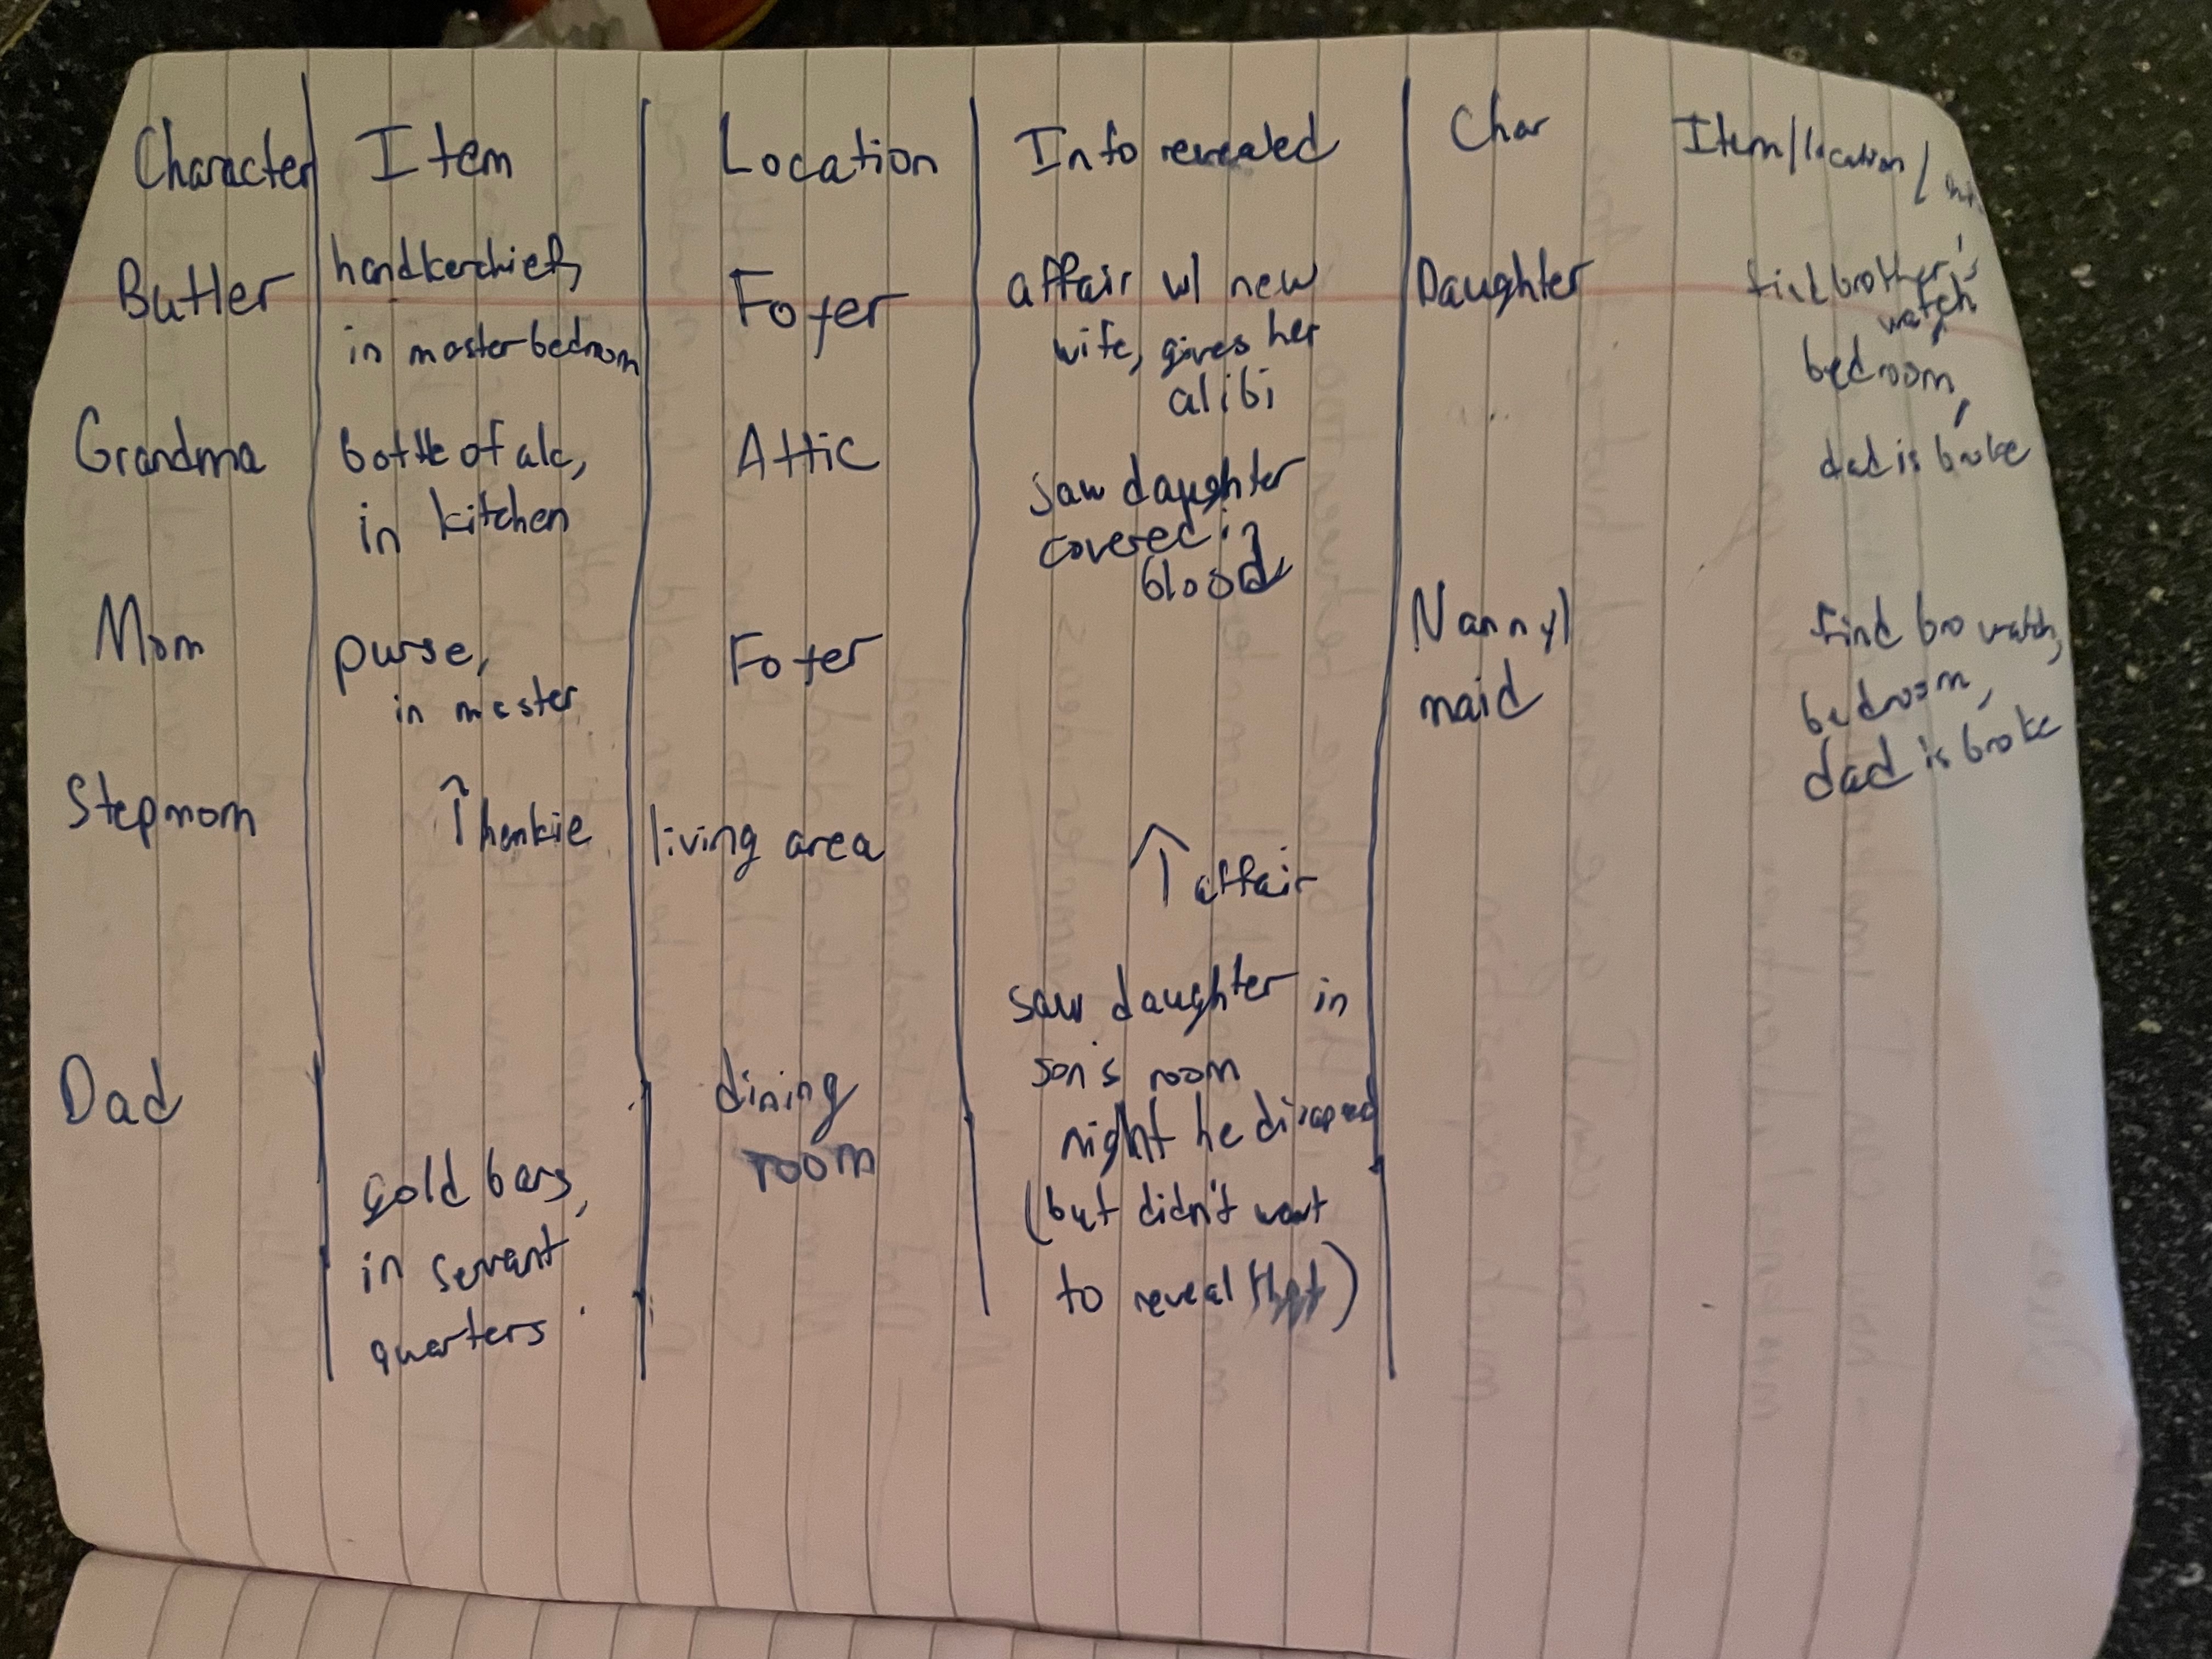 Character
Item
Location
Info revealed
Char
Item/location/
Butler
handkerchief,
in master bedroom
Foyer
affair w/ new
wife, gives her
alibi
Daughter
find brother's
watch,
bedroom,
dad is broke
Grandma
bottle of alc,
in kitchen
Attic
saw daughter
covered in
blood
Mom
purse,
in master
Foyer
Nanny/
maid
find bro watch,
bedroom,
dad is broke
Stepmom
↑ hankie
living area
↑ affair
Dad
gold bars,
in servant
quarters
dining
room
saw daughter in
son's room
night he
(but didn't want
to reveal that)